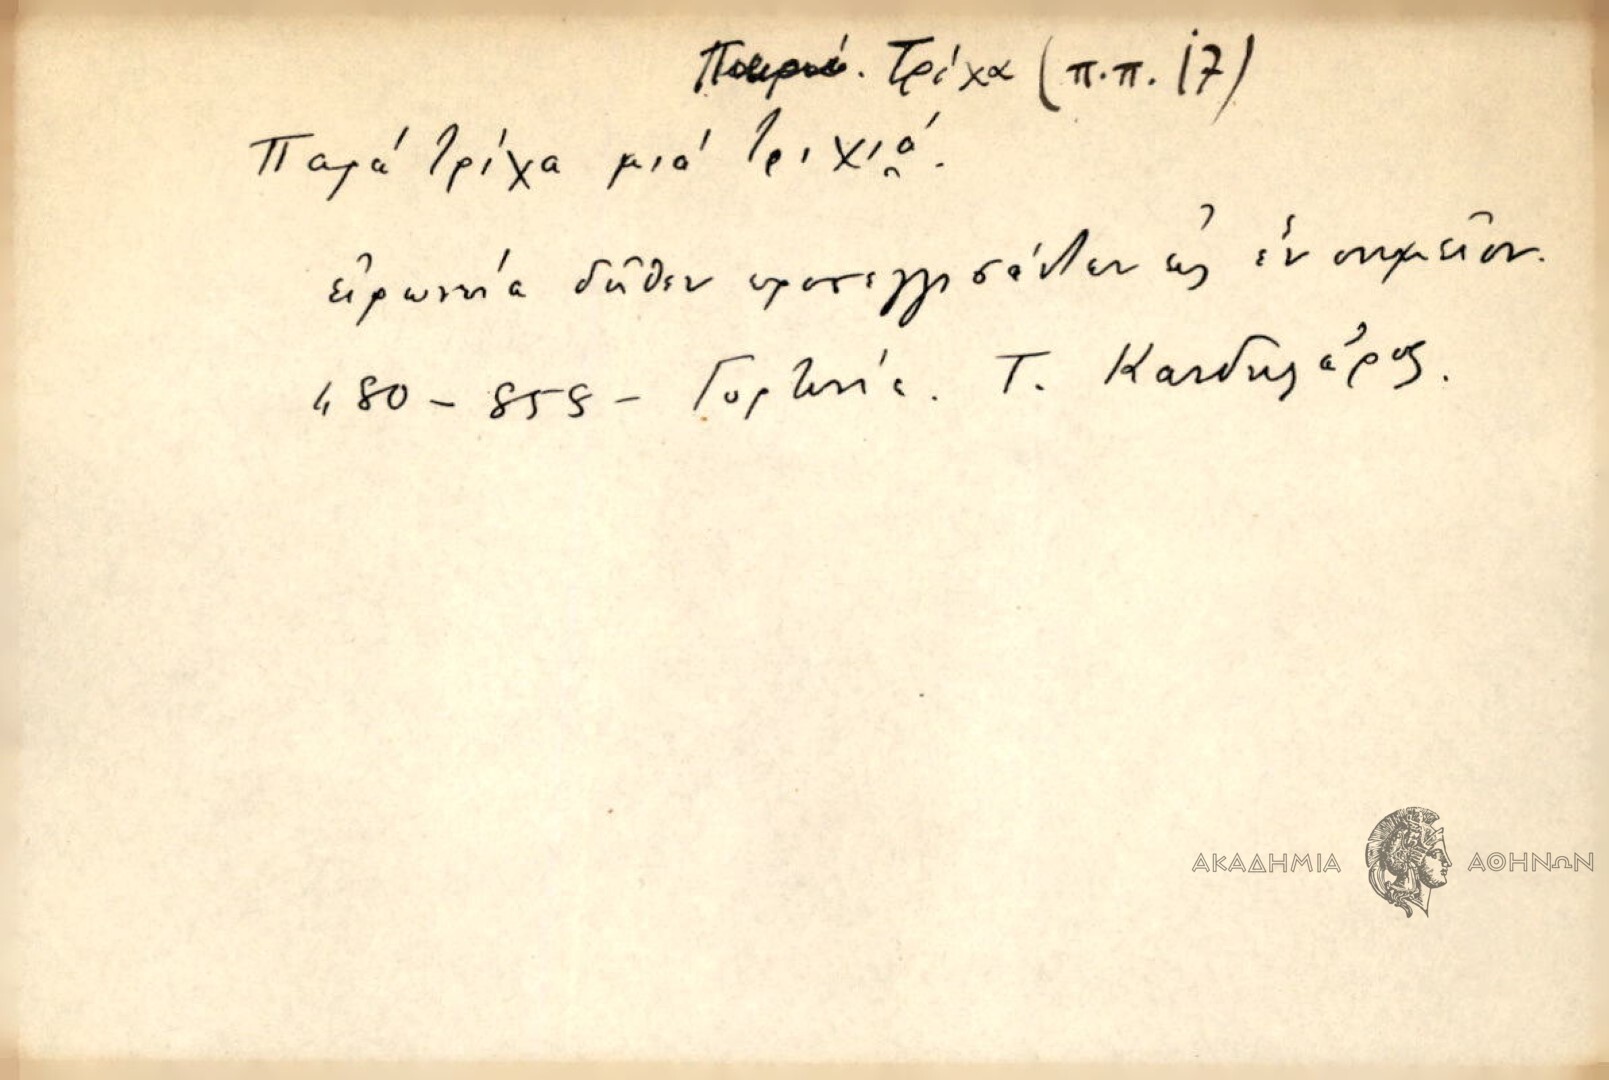 Τρίχα (π.π. 17)
Παρά τρίχα μιά τριχιά.
εἰρωνεία δῆθεν προσεγγισάντων εἰς ἕν σημεῖον.
480 - 858 - Γορτυνία. Τ. Κανδηλάρος.
ΑΚΑΔΗΜΙΑ ΑΘΗΝΩΝ